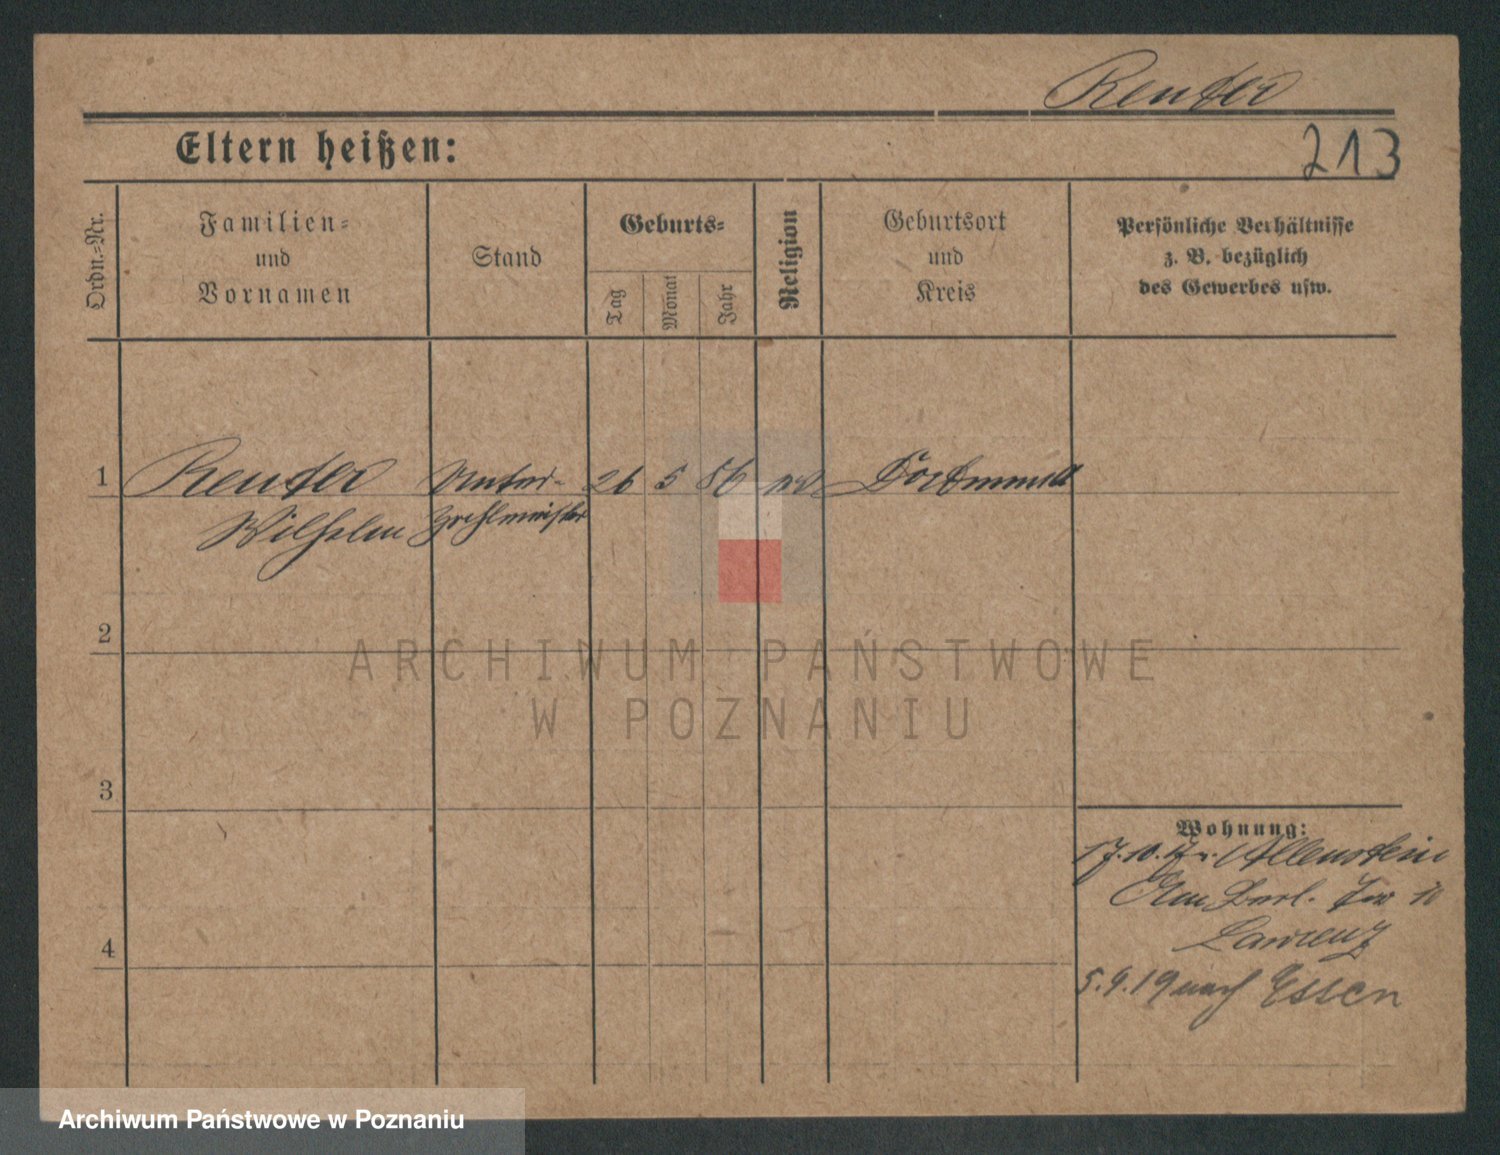 Reuter
Eltern heißen:
213
Ordn.-Nr.
Familien-
und
Vornamen
Stand
Geburts-
Tag
Monat
Jahr
Religion
Geburtsort
und
Kreis
Persönliche Verhältnisse
z. B. bezüglich
des Gewerbes usw.
1
Reuter
Wilhelm
Unter-
zahlmeister
26
5
86
Dortmund
2
3
4
Wohnung:
17.10.17 v. Allenstein
Am Berl. Tor 10
Lawrenz
5.9.19 nach Essen
ARCHIWUM PAŃSTWOWE
W POZNANIU
Archiwum Państwowe w Poznaniu